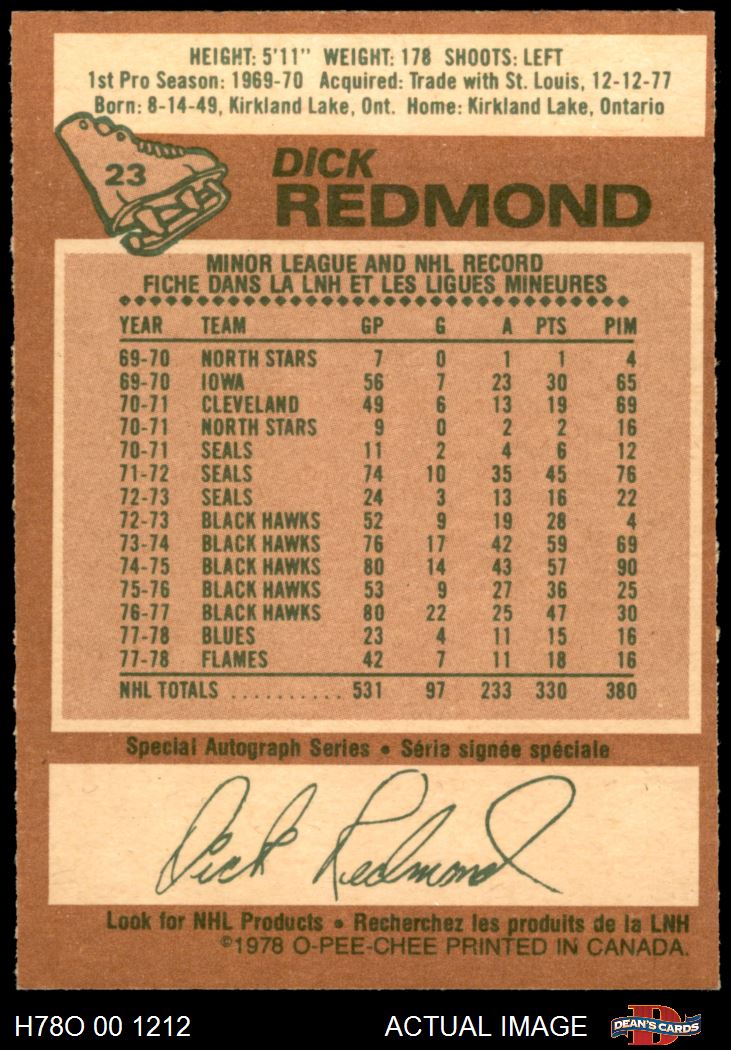 HEIGHT: 5'11" WEIGHT: 178 SHOOTS: LEFT
1st Pro Season: 1969-70 Acquired: Trade with St. Louis, 12-12-77
Born: 8-14-49, Kirkland Lake, Ont. Home: Kirkland Lake, Ontario
23
DICK
REDMOND
MINOR LEAGUE AND NHL RECORD
FICHE DANS LA LNH ET LES LIGUES MINEURES
YEAR TEAM GP G A PTS PIM
69-70 NORTH STARS 7 0 1 1 4
69-70 IOWA 56 7 23 30 65
70-71 CLEVELAND 49 6 13 19 69
70-71 NORTH STARS 9 0 2 2 16
70-71 SEALS 11 2 4 6 12
71-72 SEALS 74 10 35 45 76
72-73 SEALS 24 3 13 16 22
72-73 BLACK HAWKS 52 9 19 28 4
73-74 BLACK HAWKS 76 17 42 59 69
74-75 BLACK HAWKS 80 14 43 57 90
75-76 BLACK HAWKS 53 9 27 36 25
76-77 BLACK HAWKS 80 22 25 47 30
77-78 BLUES 23 4 11 15 16
77-78 FLAMES 42 7 11 18 16
NHL TOTALS .......... 531 97 233 330 380
Special Autograph Series • Séria signée spéciale
Dick Redmond
Look for NHL Products • Recherchez les produits de la LNH
©1978 O-PEE-CHEE PRINTED IN CANADA.
H78O 00 1212 ACTUAL IMAGE D DEAN'S CARDS